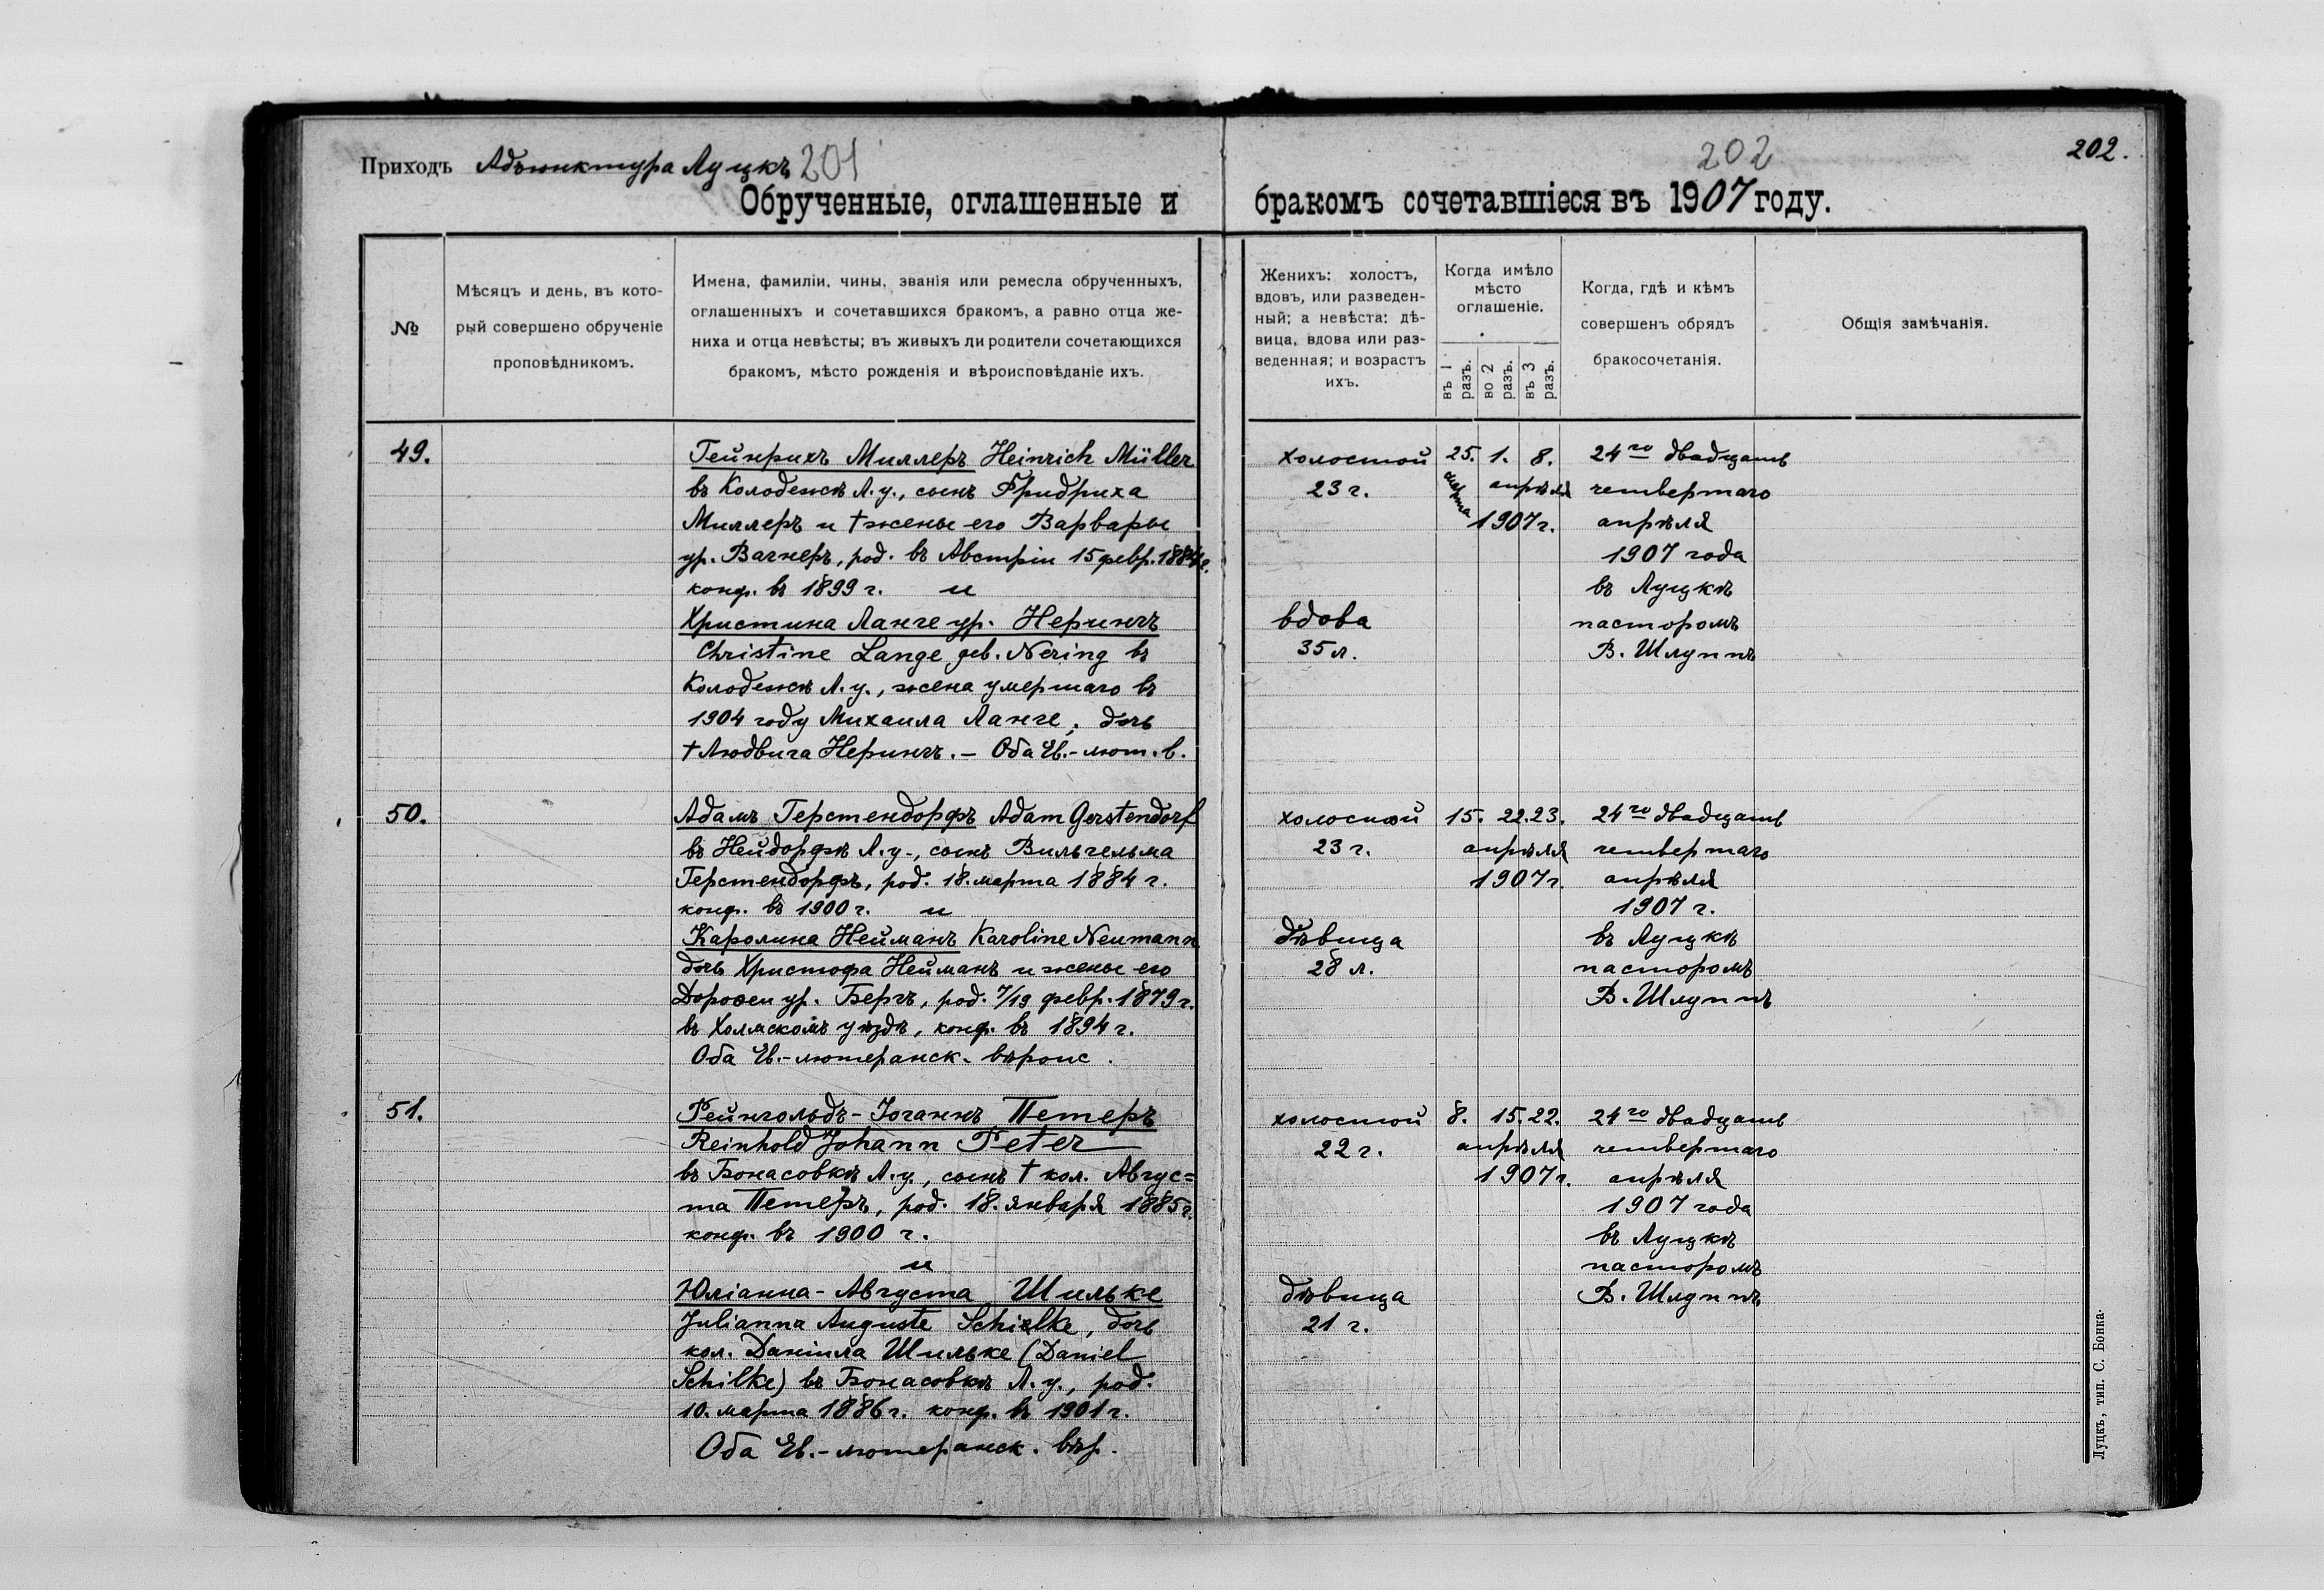 Приходъ Адъюнктура Луцкъ 201
Обрученные, оглашенные и
№
Мѣсяцъ и день, въ кото-
рый совершено обрученіе
проповѣдникомъ.
Имена, фамиліи, чины, званія или ремесла обрученныхъ,
оглашенныхъ и сочетавшихся бракомъ, а равно отца же-
ниха и отца невѣсты; въ живыхъ ли родители сочетающихся
бракомъ, мѣсто рожденія и вѣроисповѣданіе ихъ.
49.
Гейнрихъ Миллеръ Heinrich Müller
въ Колодежѣ Л. у., сынъ Фридриха
Миллеръ и † жены его Варвары
ур. Вагнеръ, род. въ Австріи 15 февр. 1884 г.
конф. въ 1899 г. и
Христина Ланге ур. Нерингъ
Christine Lange geb. Nering въ
Колодежѣ Л. у., жена умершаго въ
1904 году Михаила Ланге, дочь
† Людвига Нерингъ. – Оба Ев.-лют. в.
50.
Адамъ Герстендорфъ Adam Gerstendorf
въ Нейдорфѣ Л. у., сынъ Вильгельма
Герстендорфъ, род. 18. марта 1884 г.
конф. въ 1900 г. и
Каролина Нейманъ Karoline Neumann
дочь Христофа Нейманъ и жены его
Доровеи ур. Бергъ, род. 7/19 февр. 1879 г.
въ Холмскомъ уѣздѣ, конф. въ 1894 г.
Оба Ев.-лютеранск. вѣроис.
51.
Рейнгольдъ-Іоганнъ Петеръ
Reinhold Johann Peter
въ Бонасовкѣ Л. у., сынъ † кол. Авгус=
та Петеръ, род. 18. января 1885 г.
конф. въ 1900 г.
и
Юліанна-Августа Шильке
Julianna Auguste Schielke, дочь
кол. Даніила Шильке (Daniel
Schilke) въ Бонасовкѣ Л. у., род.
10. марта 1886 г. конф. въ 1901 г.
Оба Ев.-лютеранск. вѣр.
202
202.
бракомъ сочетавшіеся въ 1907 году.
Женихъ: холостъ,
вдовъ, или разведен-
ный; а невѣста: дѣ-
вица, вдова или раз-
веденная; и возрастъ
ихъ.
Когда имѣло
мѣсто
оглашеніе.
въ 1 разъ.
во 2 разъ.
въ 3 разъ.
Когда, гдѣ и кѣмъ
совершенъ обрядъ
бракосочетанія.
Общія замѣчанія.
холостой 25. 1. 8. 24го двадцать
23 г. марта апрѣля четвертаго
1907 г. апрѣля
1907 года
въ Луцкѣ
вдова пасторомъ
35 л. В. Шлуппъ
холостой 15. 22. 23. 24го двадцать
23 г. апрѣля четвертаго
1907 г. апрѣля
1907 г.
дѣвица въ Луцкѣ
28 л. пасторомъ
В. Шлуппъ
холостой 8. 15. 22. 24го двадцать
22 г. апрѣля четвертаго
1907 г. апрѣля
1907 года
въ Луцкѣ
пасторомъ
дѣвица В. Шлуппъ
21 г.
Луцкъ, тип. С. Бонка.